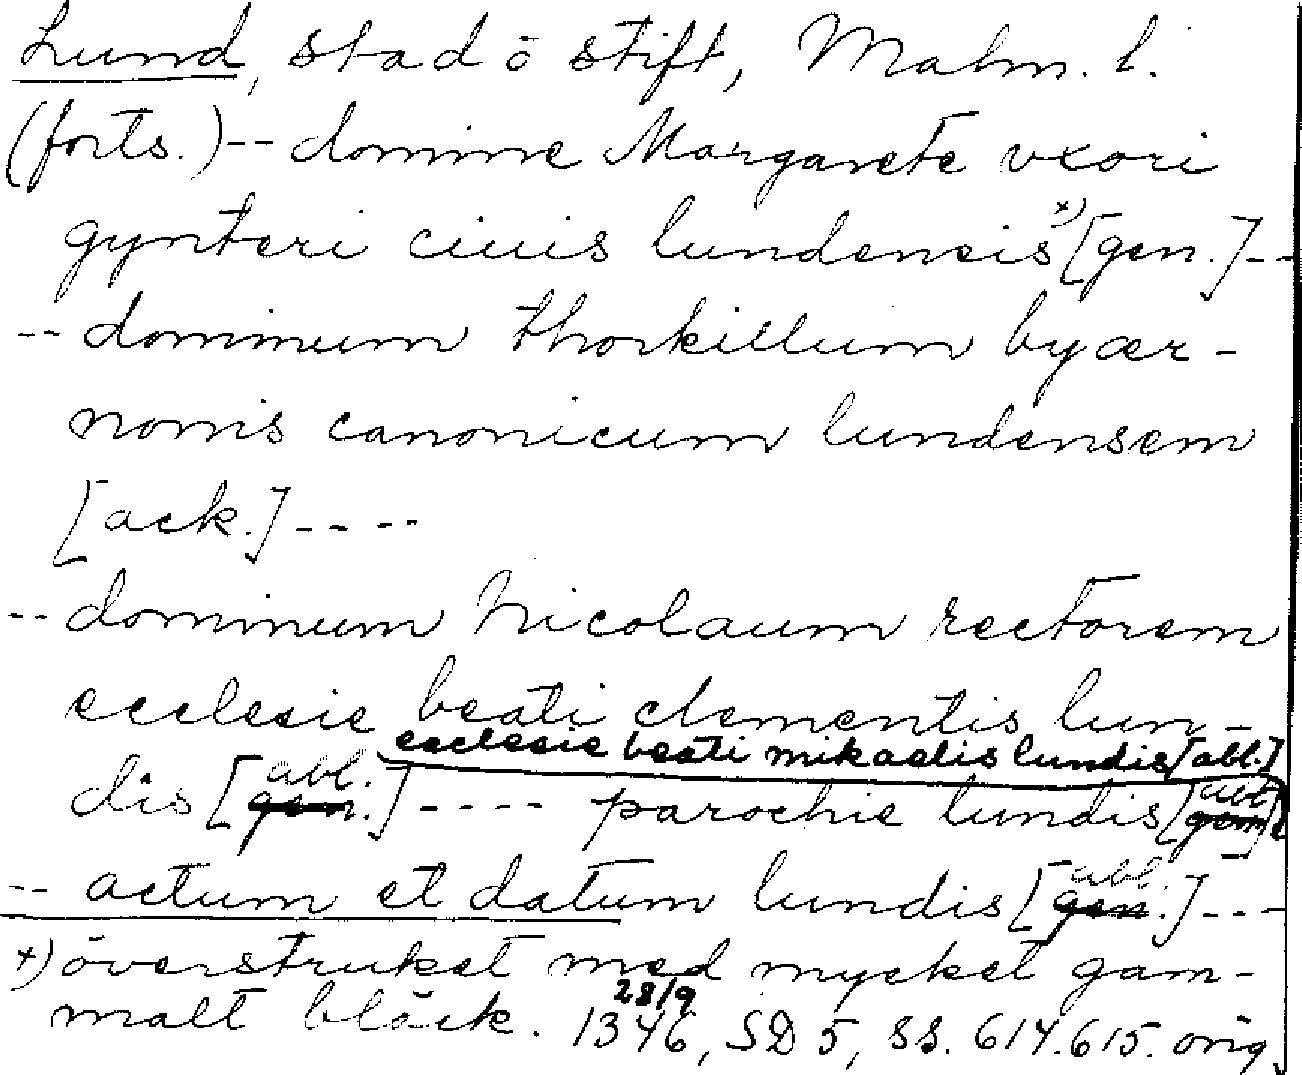 Lund, stad o stift, Malm. l.
(forts.) -- domine Margarete vxori
gynteri ciuis lundensis +) [gen.] --
-- dominum thorkillum byær-
nonis canonicum lundensem
[ack.] ----
-- dominum Nicolaum rectorem
ecclesie beati clementis lun-
ecclesie beati mikaelis lundis [abl.]
dis [gen. abl.] ---- parochie lundis [gen. abl.]
-- actum et datum lundis [gen. abl.] ---
+) överstruket med mycket gam-
malt bläck. 28/9 1346, SD 5, ss. 614. 615. orig